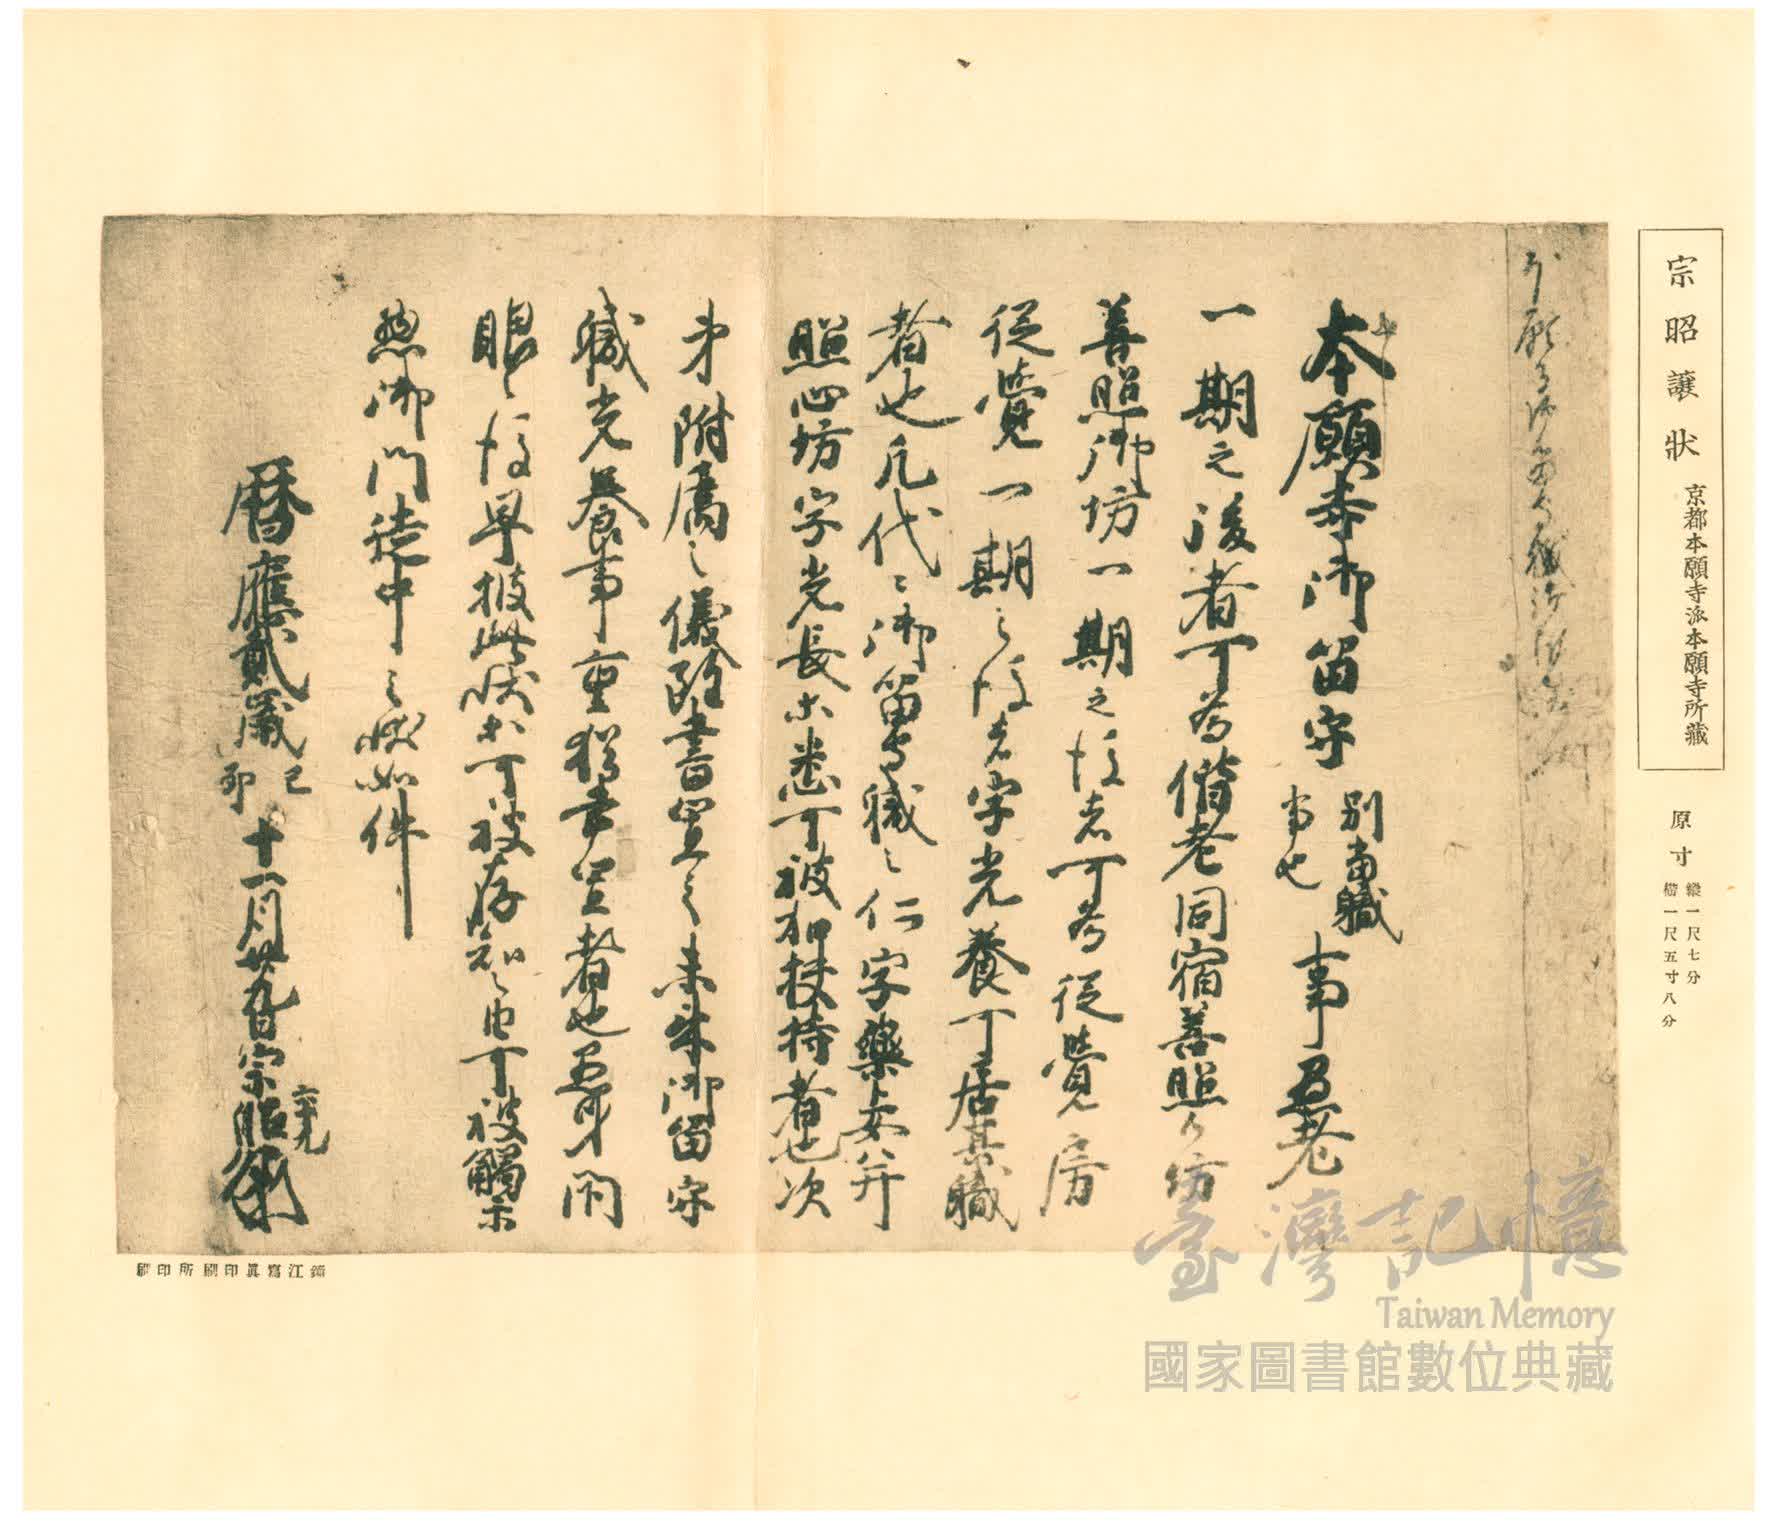 宗昭讓狀 京都本願寺派本願寺所藏
原寸 縱一尺七分 橫一尺五寸八分
本願寺御留守 別當職 事 愚老
一期之後者可為偕老同宿善照御坊
善照御坊一期之後者可為從覺房
從覺一期之後者字光養丁居其職
者也凡代々御留守職之仁字藥上女并
照心坊字光長等悉可被加扶持者也次
附屬之儀 書置之 未來御留守
職光養事重 書置者也愚身閉
眼之後早披此狀等可被存知之由可被觸示
惣御門徒中之狀如件
曆應貳歲己卯十一月廿八日宗昭
臺灣記憶
Taiwan Memory
國家圖書館數位典藏